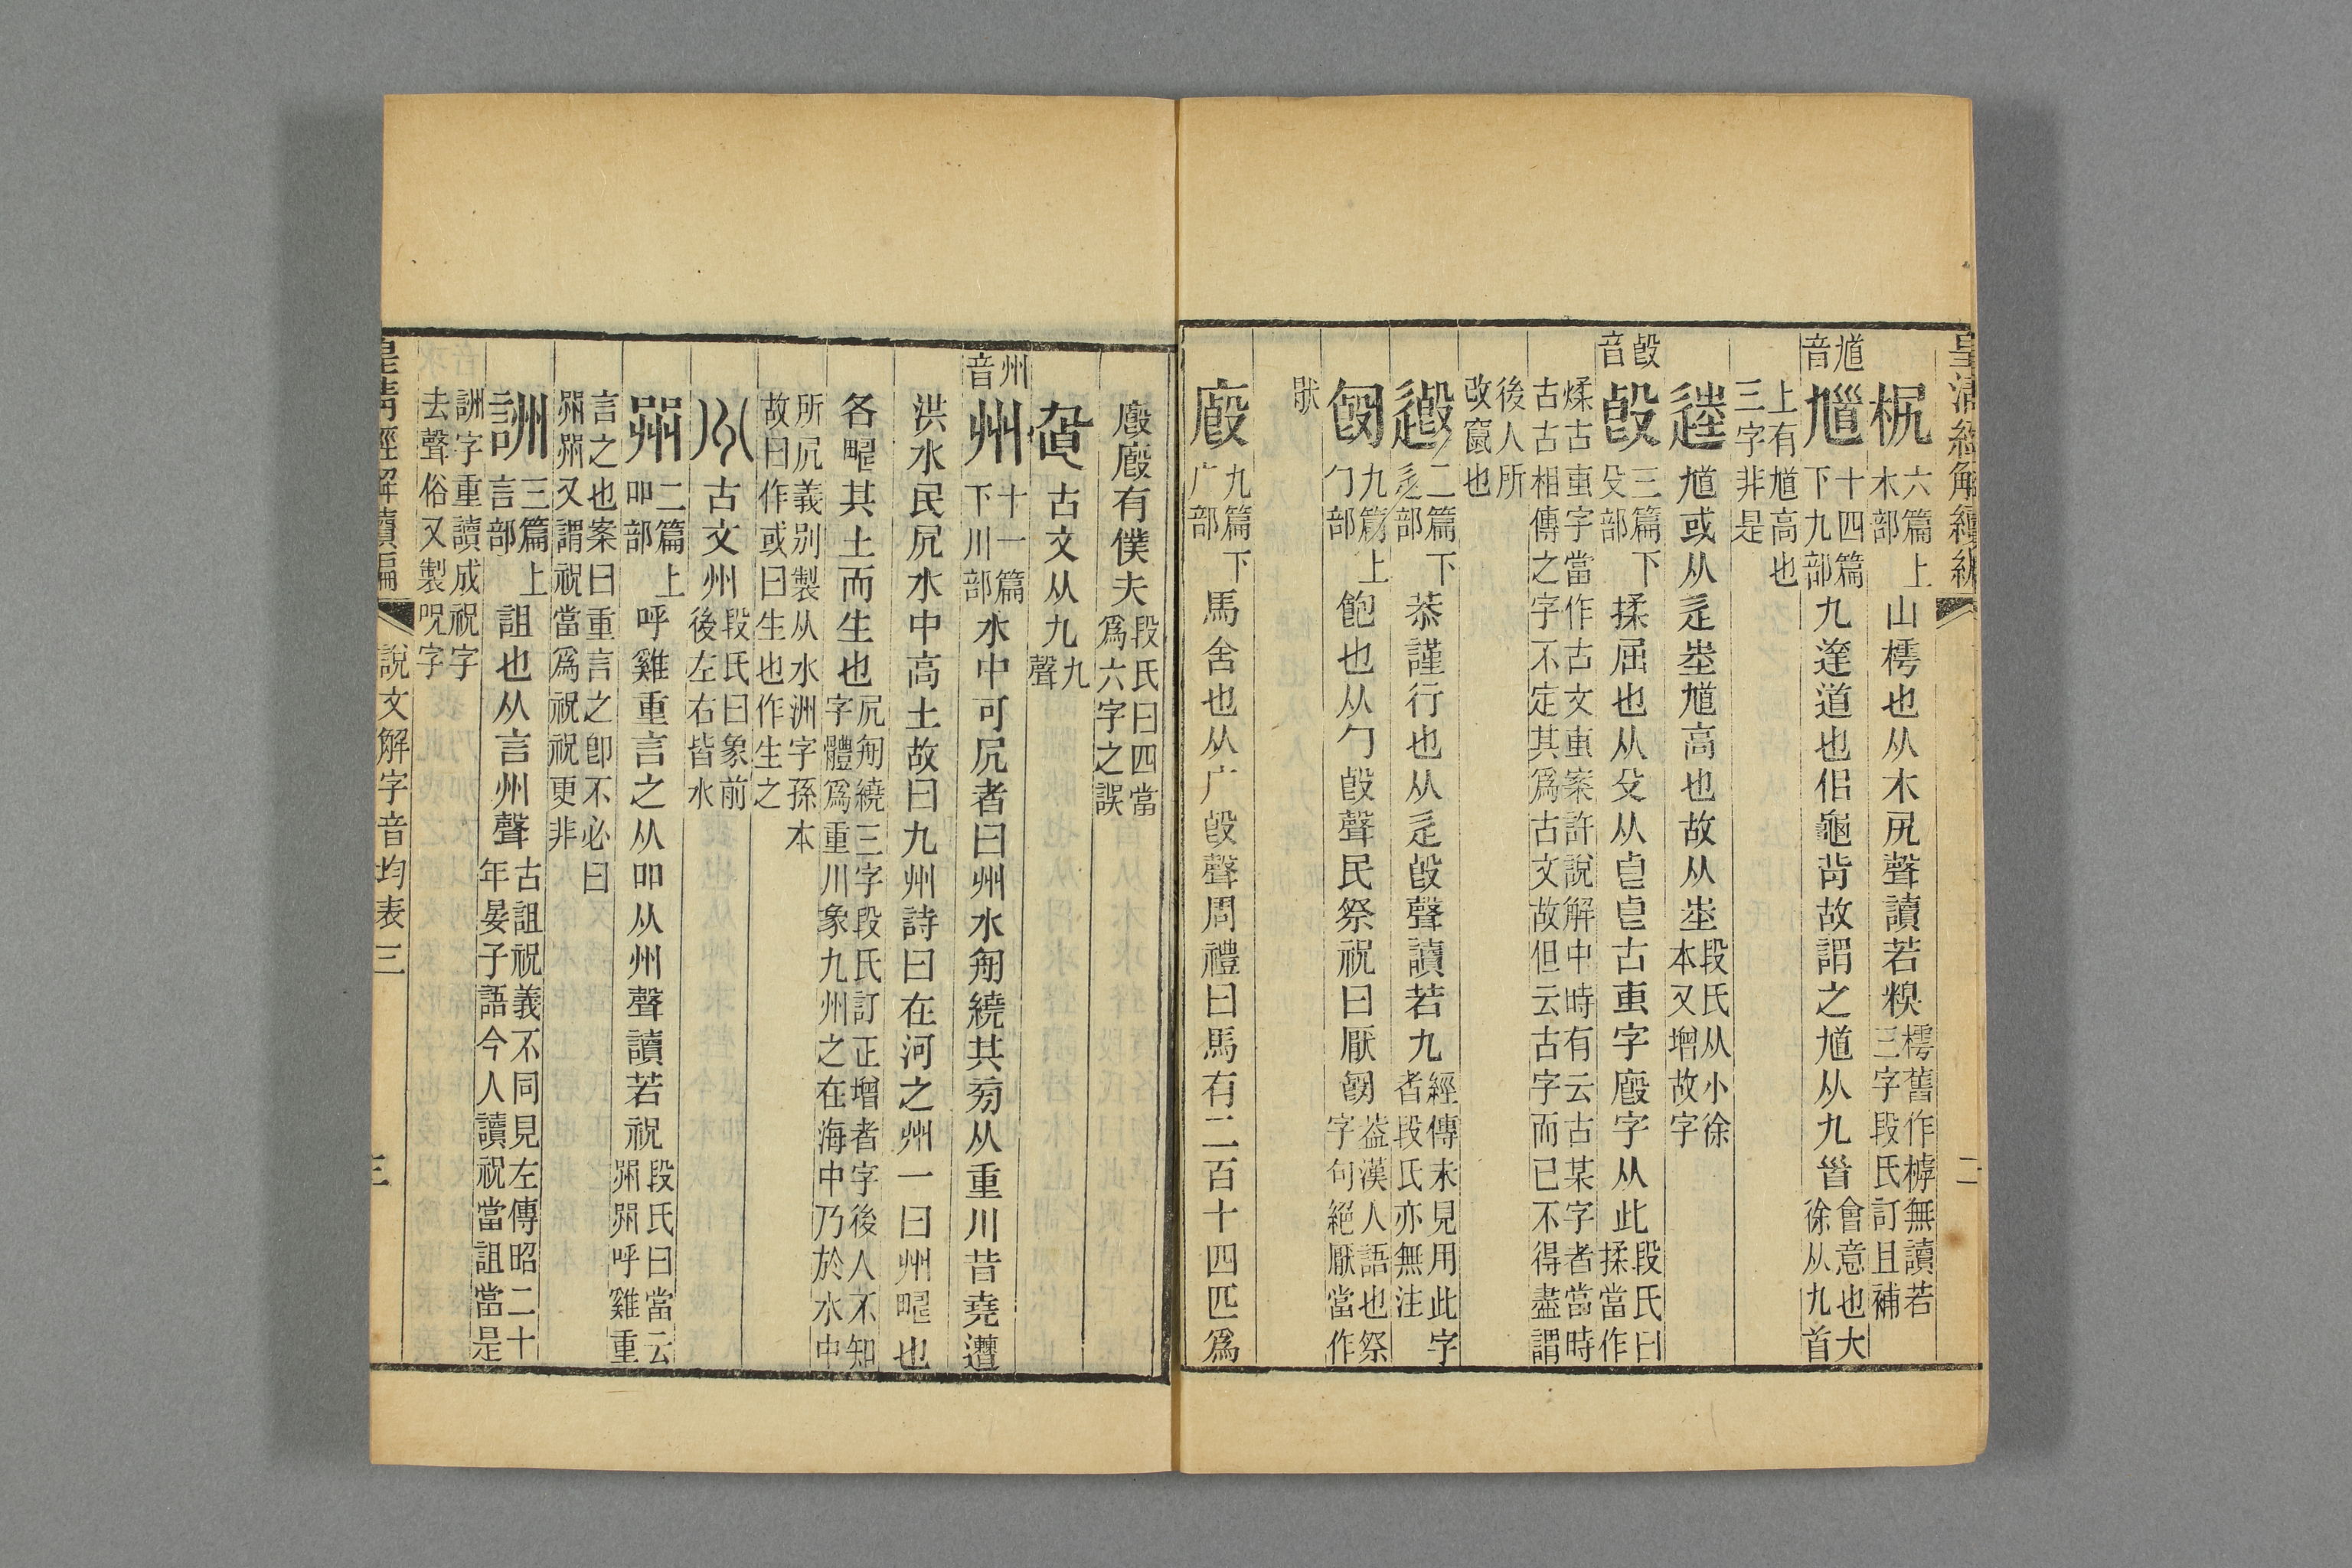 皇清經解續編
二
𣐤六篇上木部山樗也从木尻聲讀若糗樗舊作㯉無讀若三字段氏訂且補
馗音
馗十四篇下九部九逵道也佀龜背故謂之馗从九𩠐會意也大徐从九首
上有馗高也三字非是
逵馗或从辵坴馗高也故从坴段氏从小徐本又增故字
𣪘音
𣪘三篇下殳部揉屈也从殳从㿝㿝古叀字廏字从此段氏曰揉當作
煣古叀字當作古文叀案許說解中時有云古某字者當時古古相傳之字不定其爲古文故但云古字而已不得盡謂
後人所改竄也
𨗇二篇下辵部恭謹行也从辵𣪘聲讀若九經傳未見用此字者段氏亦無注
匓九篇上勹部飽也从勹𣪘聲民祭祝曰厭匓葢漢人語也祭字句絕厭當作
猒
廏九篇下广部馬舍也从广𣪘聲周禮曰馬有二百十四匹爲
廏廏有僕夫段氏曰四當爲六字之誤
古文从九九聲
州音
州十一篇下川部水中可凥者曰州水匊繞其㫄从重川昔堯遭
洪水民凥水中高土故曰九州詩曰在河之州一曰州疇也
各疇其土而生也凥匊繞三字段氏訂正增者字後人不知字體爲重川象九州之在海中乃於水中
所凥義别製从水洲字孫本故曰作或曰生也作生之
古文州段氏曰象前後左右皆水
喌二篇上吅部呼雞重言之从吅从州聲讀若祝段氏曰當云喌喌呼雞重
言之也案曰重言之卽不必曰喌喌又謂祝當爲祝祝更非
詶三篇上言部詛也从言州聲古詛祝義不同見左傳昭二十年晏子語今人讀祝當詛當是
詶字重讀成祝字去聲俗又製呪字
皇清經解續編
說文解字音均表三
三